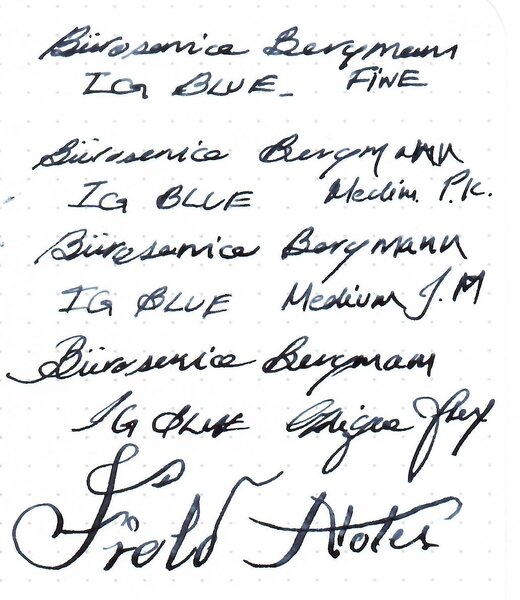 Büroservice Bergmann
IG BLUE FINE
Büroservice Bergmann
IG BLUE Medium P.K.
Büroservice Bergmann
IG BLUE Medium J.M
Büroservice Bergmann
IG BLUE Flex
Field Notes